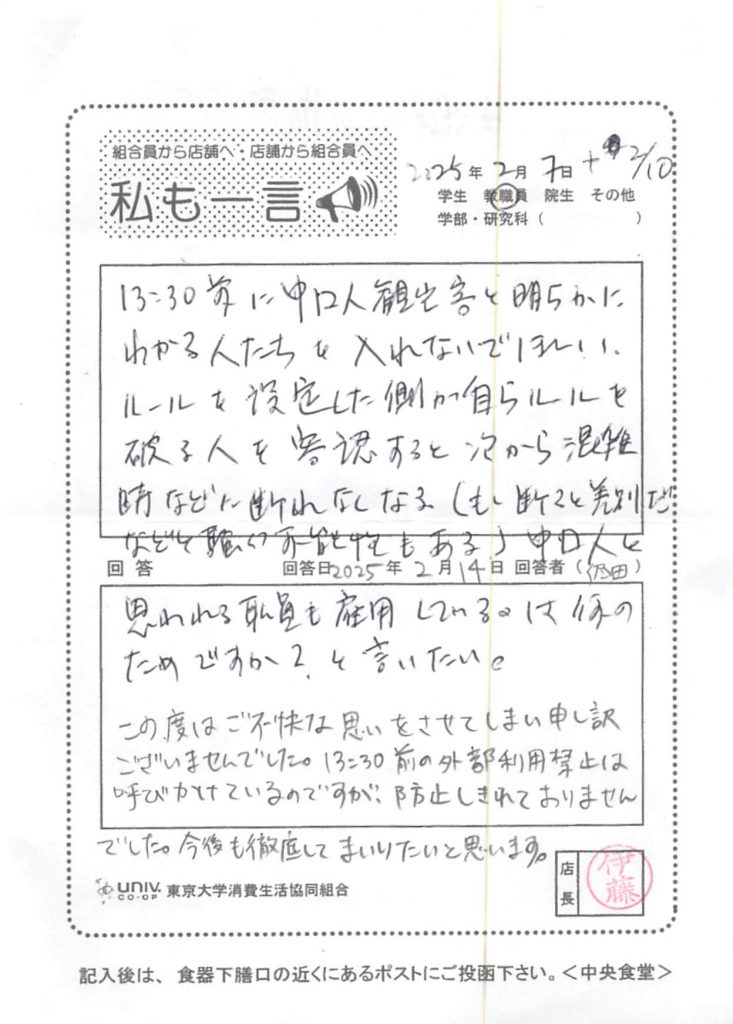 組合員から店舗へ・店舗から組合員へ
私も一言
2025年 2月 7日 + 2/10
学生 教職員 院生 その他
学部・研究科（ ）
13:30前に中国人観光客と明らかに
わかる人たちを入れないでほしい。
ルールを設定した側が自らルールを
破る人を容認すると次から混雑
時などに断れなくなる（もし断ると差別だ
などと騒ぐ可能性もある）中国人と
回答 回答日2025年 2月14日 回答者（ 田）
思われる職員も雇用しているのは何の
ためですか？と言いたい。
この度はご不快な思いをさせてしまい申し訳
ございませんでした。13:30前の外部利用禁止は
呼びかけているのですが、防止しきれておりません
でした。今後も徹底してまいりたいと思います。
UNIV. CO-OP 東京大学消費生活協同組合
店長 伊藤
記入後は、食器下膳口の近くにあるポストにご投函下さい。＜中央食堂＞